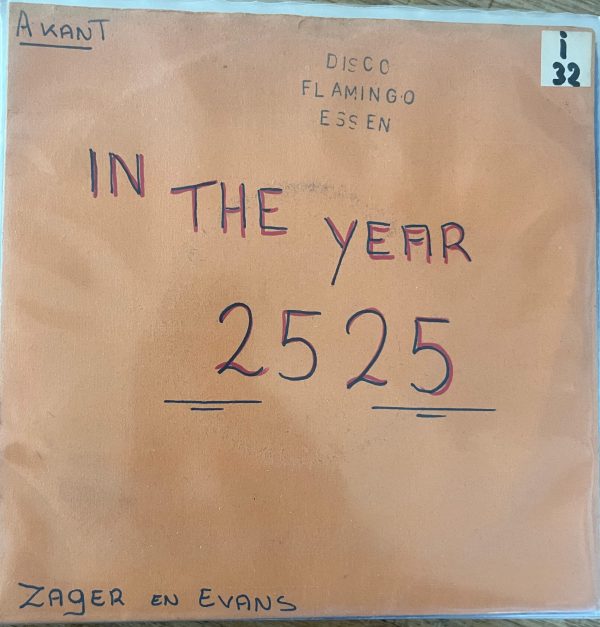 A KANT
i
32
DISCO
FLAMINGO
ESSEN
IN THE YEAR
2525
ZAGER EN EVANS